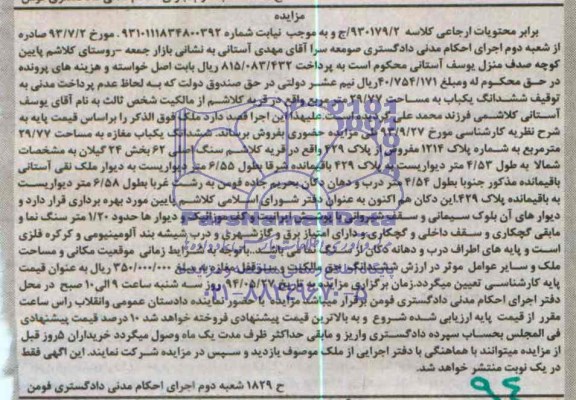 مزایده
برابر محتویات ارجاعی کلاسه ۹۳۰۱۷۹/۲/ج و به موجب نیابت شماره ۹۳۱۰۱۱۱۸۳۴۸۰۰۳۹۲ . مورخ ۹۳/۷/۲ صادره
از شعبه دوم اجرای احکام مدنی دادگستری صومعه سرا آقای مهدی آستانی به نشانی بازار جمعه -روستای کلاشم پایین
کوچه صدف منزل یوسف آستانی محکوم است به پرداخت ۸۱۵/۰۸۳/۴۳۲ ریال بابت اصل خواسته و هزینه های پرونده
در حق محکوم له ومبلغ ۴۰/۷۵۴/۱۷۱ریال نیم عشر دولتی در حق صندوق دولت که به لحاظ عدم پرداخت مدنی به
توقیف ششدانگ یکباب به مساحت ۲۹/۷۷ واقع در قریه کلاشم از مالکیت شخص ثالث به نام آقای یوسف
آستانی کلاشمی فرزند محمد علی این اجرا قصد دارد ملک فوق الذکر را براساس قیمت پایه به
شرح نظریه کارشناسی مورخ ۹۳/۹/۲۷ طی مزایده حضوری بفروش برساند. ششدانگ یکباب مغازه به مساحت ۲۹/۷۷
مترمربع به شماره پلاک ۱۲۱۴ مفروز از پلاک ۴۲۹ واقع در قریه کلاشم سنگ اصلی ۶۲ بخش ۲۴ گیلان به مشخصات
شمالا به طول ۴/۵۳ متر دیواریست به پلاک ۴۲۹ باقیمانده شرقا بطول ۶/۵۵ متر دیواریست به دیوار ملک نقی آستانی
باقیمانده مذکور جنوبا بطول ۴/۵۴ متر درب و دهان دکان بحریم جاده فومن به رشت غربا بطول ۶/۵۸ متر دیواریست
به باقیمانده پلاک ۴۲۹.این دکان هم اکنون به عنوان دفتر شورای اسلامی کلاشم پایین مورد بهره برداری قرار دارد و
دیوار های آن بلوک سیمانی و سقف شیروانی با پوشش ایرانیت و کف موزائیک و دیوار ها حدود ۱/۲۰ متر سنگ نما و
مابقی گچکاری و سقف داخلی و گچکاری و دارای امتیاز برق و گازشهری و درب شیشه بند آلومینیومی و کرکره فلزی
است و پایه های اطراف درب و دهانه دکان از سنگ نما می باشد. باتوجه به شرایط زمانی موقعیت مکانی و مساحت
ملک و سایر عوامل موثر در ارزش ششدانگ مغازه به مبلغ ۳۵۰/۰۰۰/۰۰۰ ریال به عنوان قیمت
پایه کارشناسی تعیین میگردد.زمان برگزاری مزایده به تاریخ ۹۴/۰۵/۲۷ روز سه شنبه ساعت ۹ الی ۱۰ صبح در محل
دفتر اجرای احکام مدنی دادگستری فومن برگزار میباشد حضور نماینده دادستان عمومی وانقلاب راس ساعت
مقرر از قیمت پایه ارزیابی شده شروع و به بالاترین قیمت پیشنهادی فروخته خواهد شد ۱۰ درصد قیمت پیشنهادی
فی المجلس بحساب سپرده دادگستری واریز و مابقی حداکثر ظرف مدت یک ماه وصول میگردد خریداران ۵روز قبل
از مزایده میتوانند با هماهنگی با دفتر اجرایی از ملک موصوف بازدید و سپس در مزایده شرکت نمایند. این آگهی فقط
در یک نوبت منتشر خواهد شد.
ح ۱۸۲۹ شعبه دوم اجرای احکام مدنی دادگستری فومن
۹۴